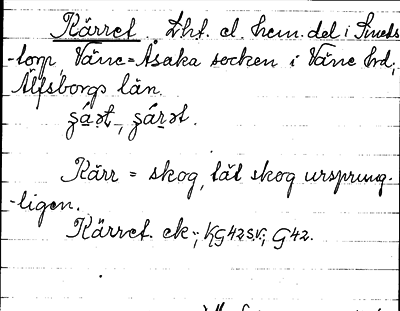 Kärret. Lht. el. hem. del i Smeds-
-torp Väne=Åsaka socken i Väne hrd,
Älfsborgs län.
Kärr = skog, tät skog ursprung-
-ligen.
Kärret. ek.; KG42S.V.; G42.